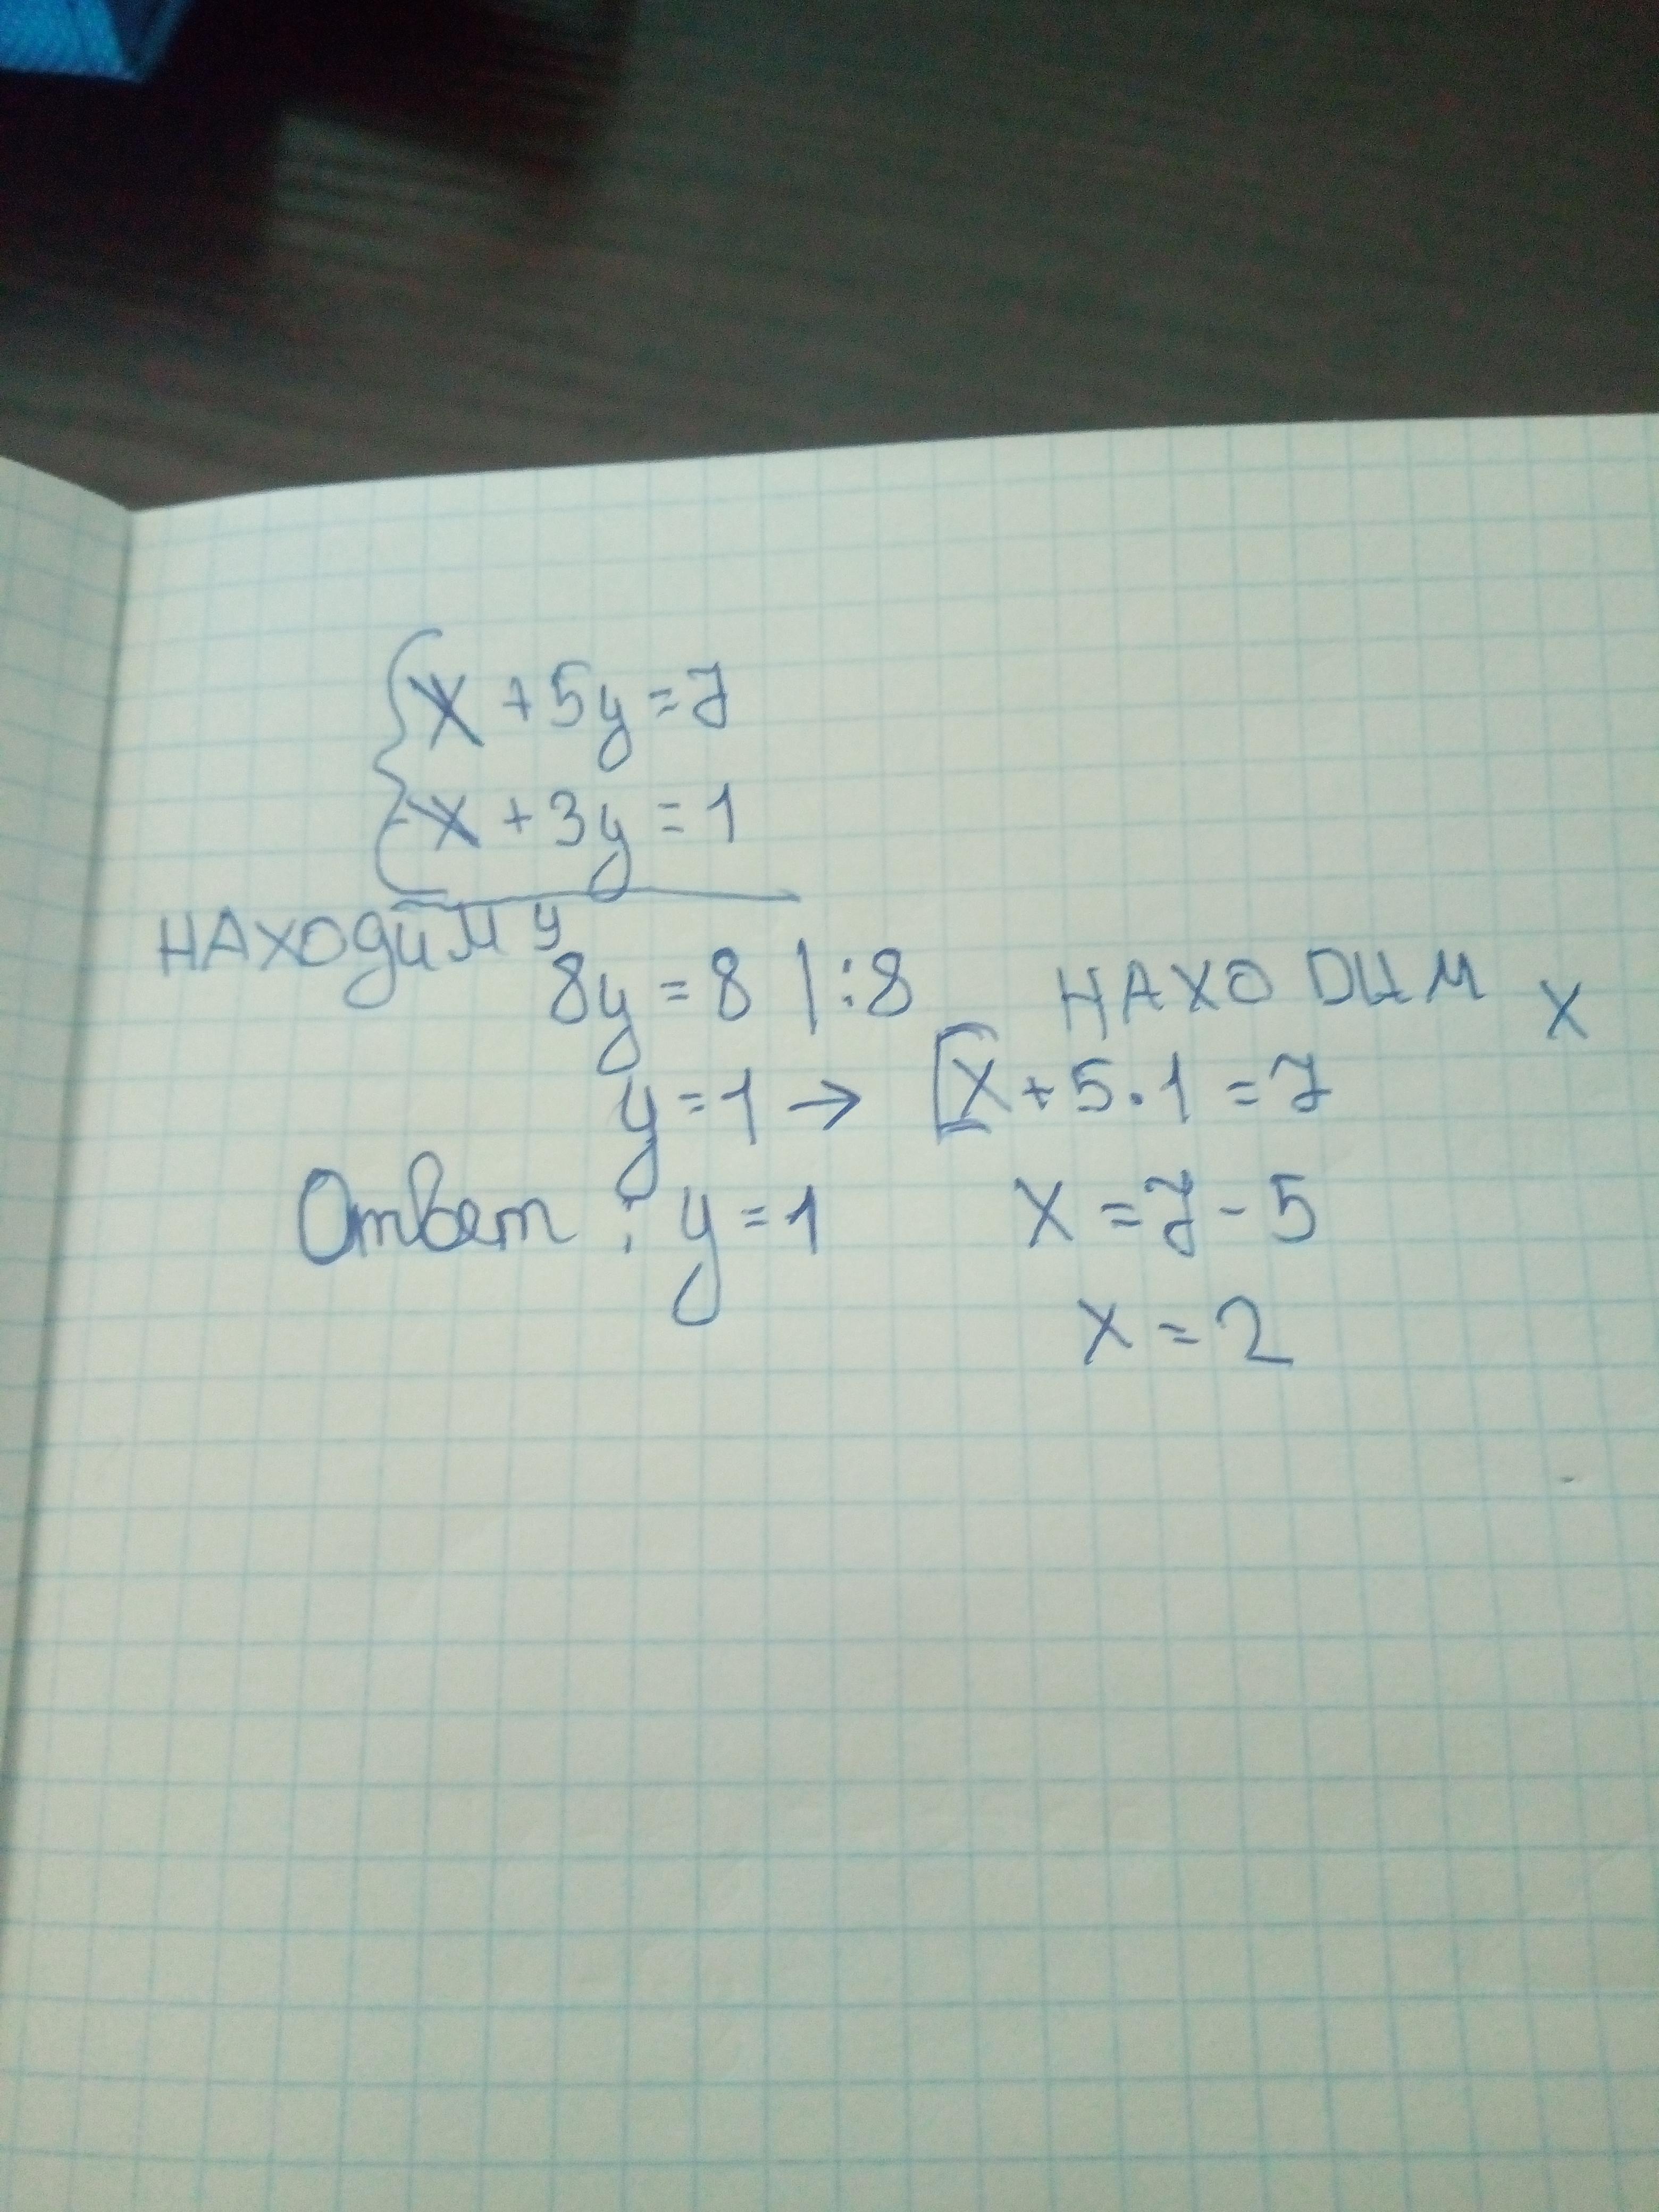 x + 5y = 7
-x + 3y = 1
НАХОДИМ y
8y = 8 | : 8
y = 1 →
Ответ : y = 1
НАХОДИМ x
[x + 5 · 1 = 7
x = 7 - 5
x = 2